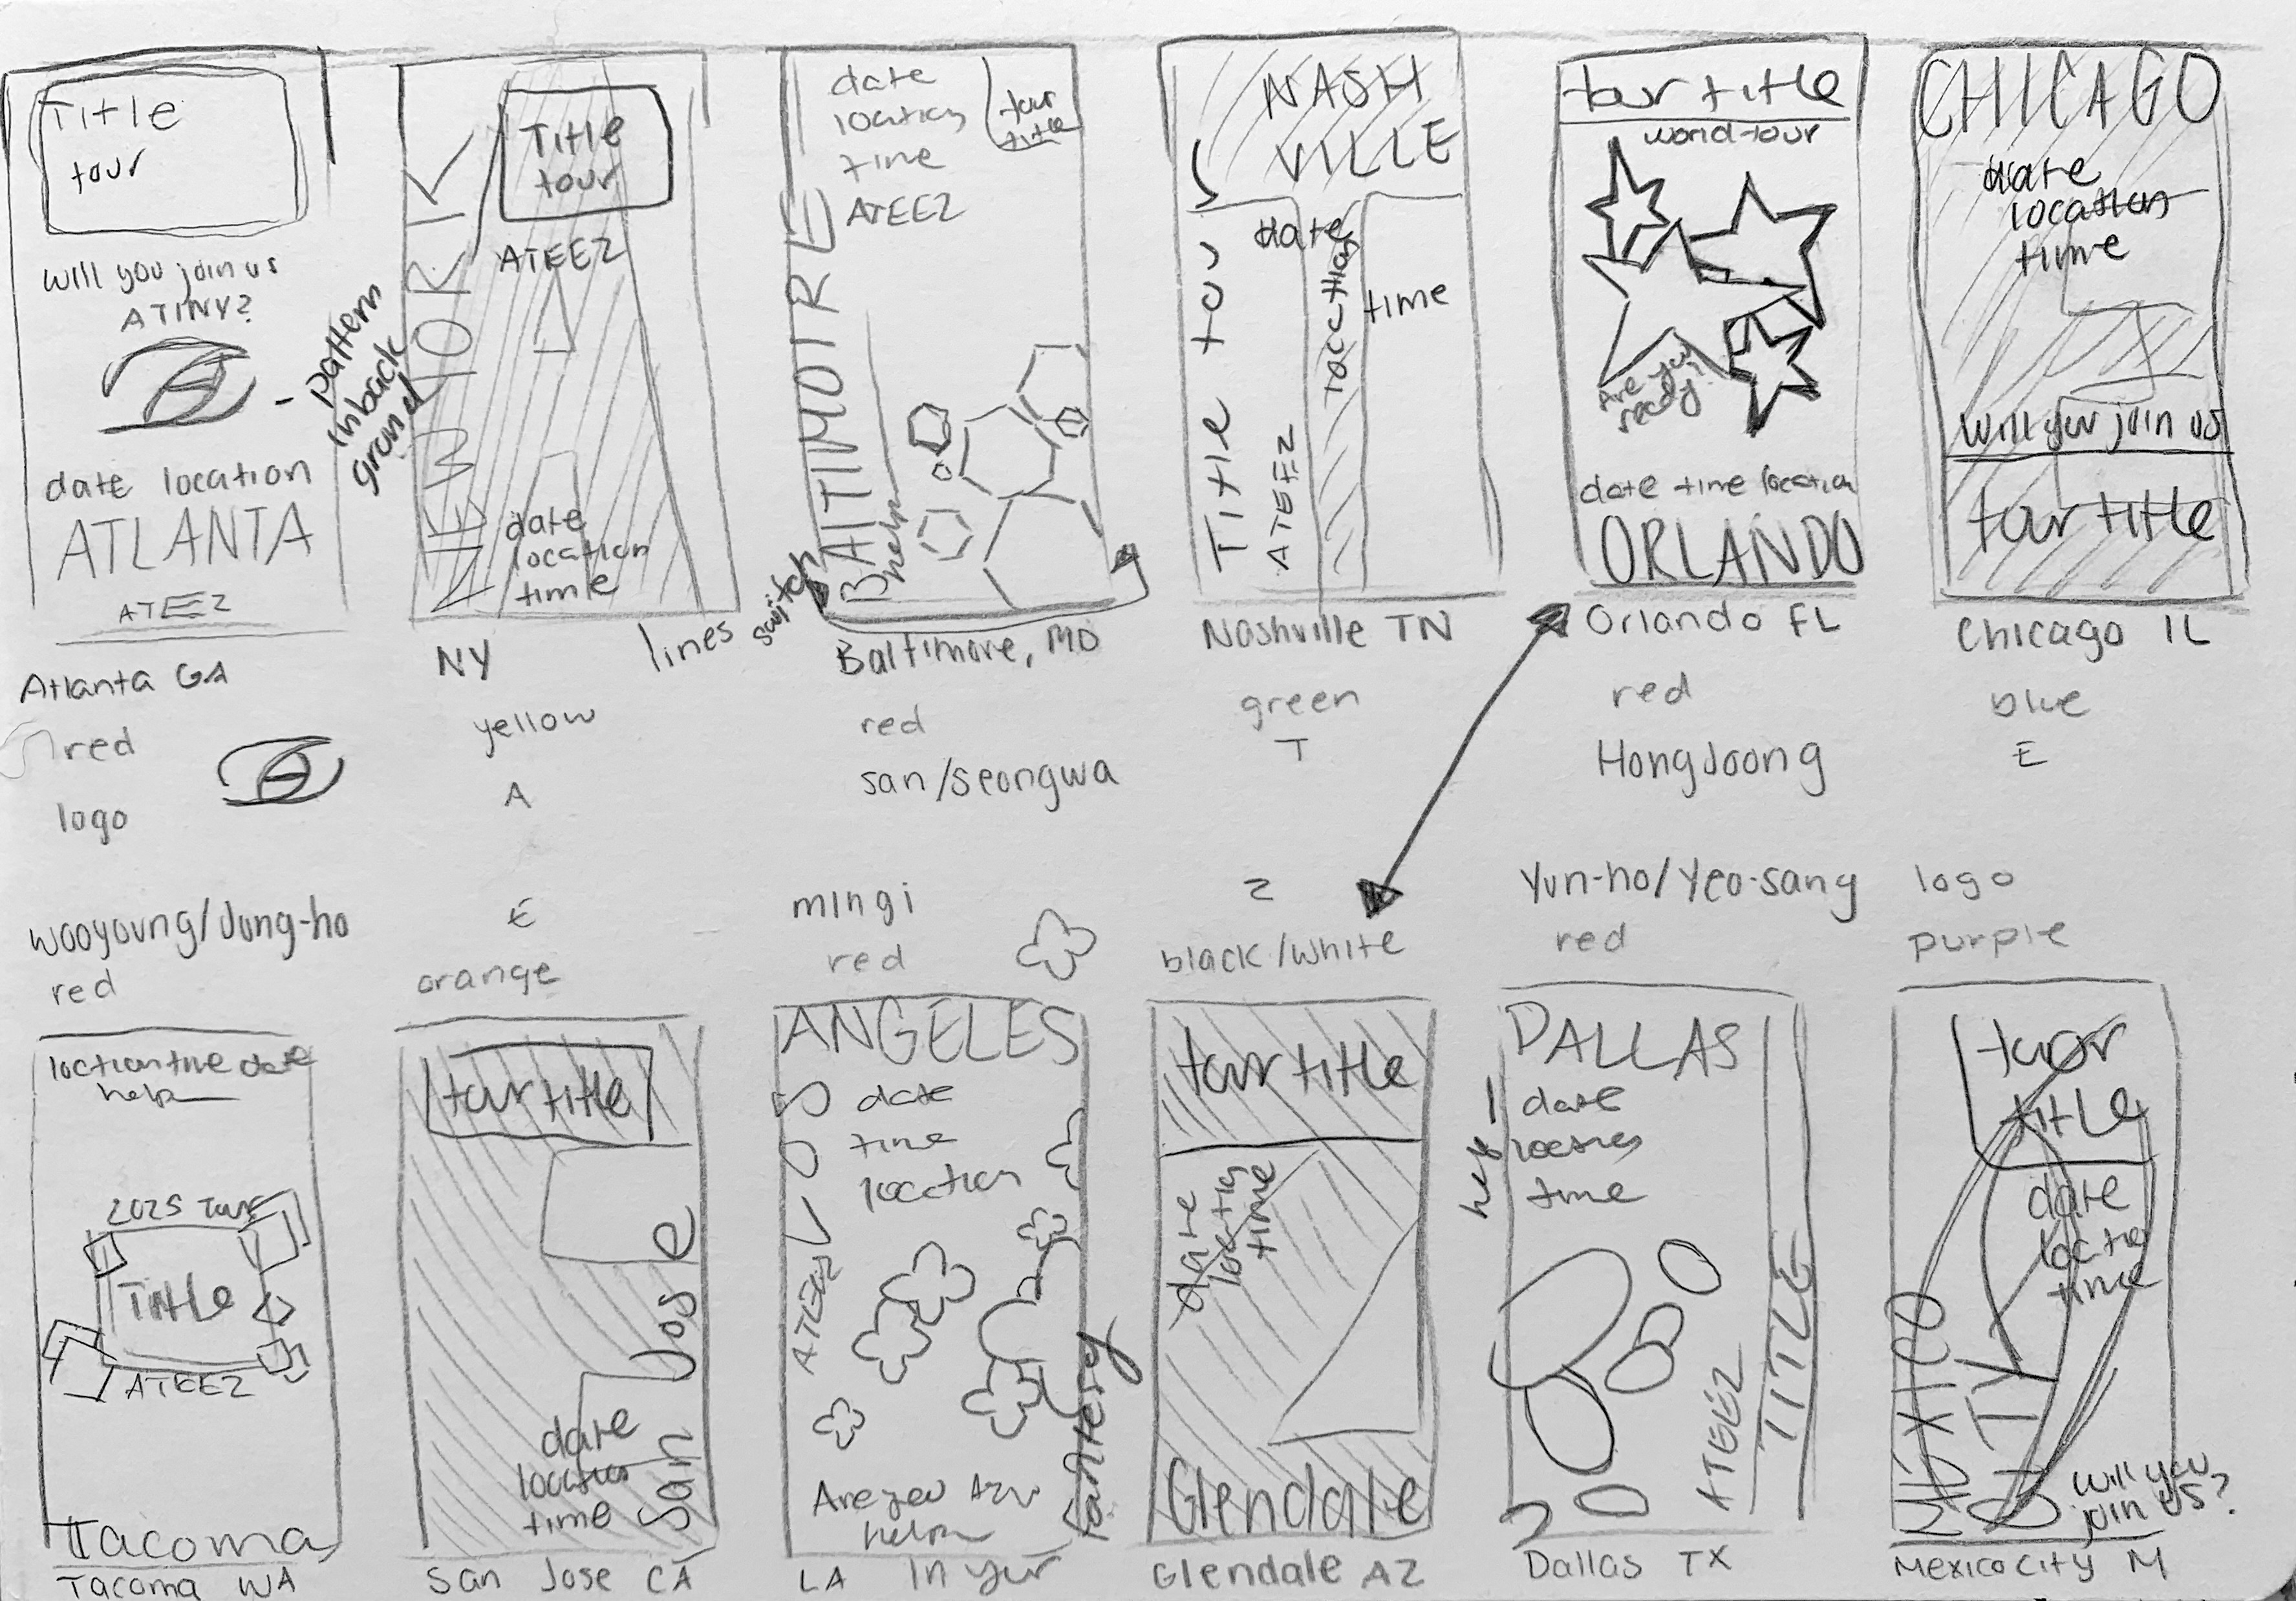 Title
tour
will you join us
ATINY?
date location
ATLANTA
ATEEZ
Atlanta GA
red
logo
pattern
in back
ground
NEW YORK
Title
tour
ATEEZ
date
location
time
NY
yellow
A
lines
switch
date
location
time
ATEEZ
tour
title
BALTIMORE
help
Baltimore, MD
red
san/seongwa
NASH
VILLE
Title tour
date
location
time
ATEEZ
Nashville TN
green
T
tour title
world tour
Are you
ready
date time location
ORLANDO
Orlando FL
red
HongJoong
CHICAGO
date
location
time
will you join us
tour title
Chicago IL
blue
E
wooyoung/Jong-ho
red
loctiontime date
help
2025 Tour
Title
ATEEZ
Tacoma
Tacoma WA
E
orange
tour title
San Jose
date
location
time
San Jose CA
mingi
red
ANGELES
LOS
date
time
location
ATEEZ
Are you
help
fantesey
LA
In your
Z
black/white
tour title
date
loction
time
Glendale
Glendale AZ
Yun-ho/Yeo-sang
red
DALLAS
help
date
time
ATEEZ
TITLE
Dallas TX
logo
purple
tour
title
date
loctio
time
MEXICO
CITY
will you
join us?
Mexico City M